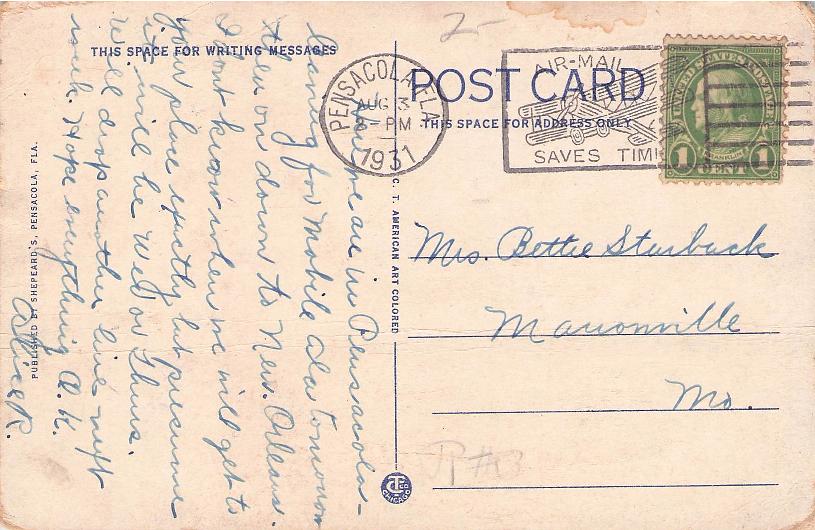 2-
THIS SPACE FOR WRITING MESSAGES
POST CARD
THIS SPACE FOR ADDRESS ONLY
PENSACOLA, FLA.
AUG 3
-PM
1931
AIR-MAIL
SAVES TIME
UNITED STATES POSTAGE
FRANKLIN
1 CENT 1
Here we are in Pensacola-
leaving for Mobile Ala tomorrow
then on down to New. Orleans.
I dont know when we will get to
your place exactly but presume
it will be Wed or Thurs.
Will drop another line next
week. Hope everything O.K.
Alice R.
Mrs. Bettie Starbuck
Marionville
Mo.
C. T. AMERICAN ART COLORED
PUBLISHED BY SHEPEARD'S, PENSACOLA, FLA.
CHICAGO